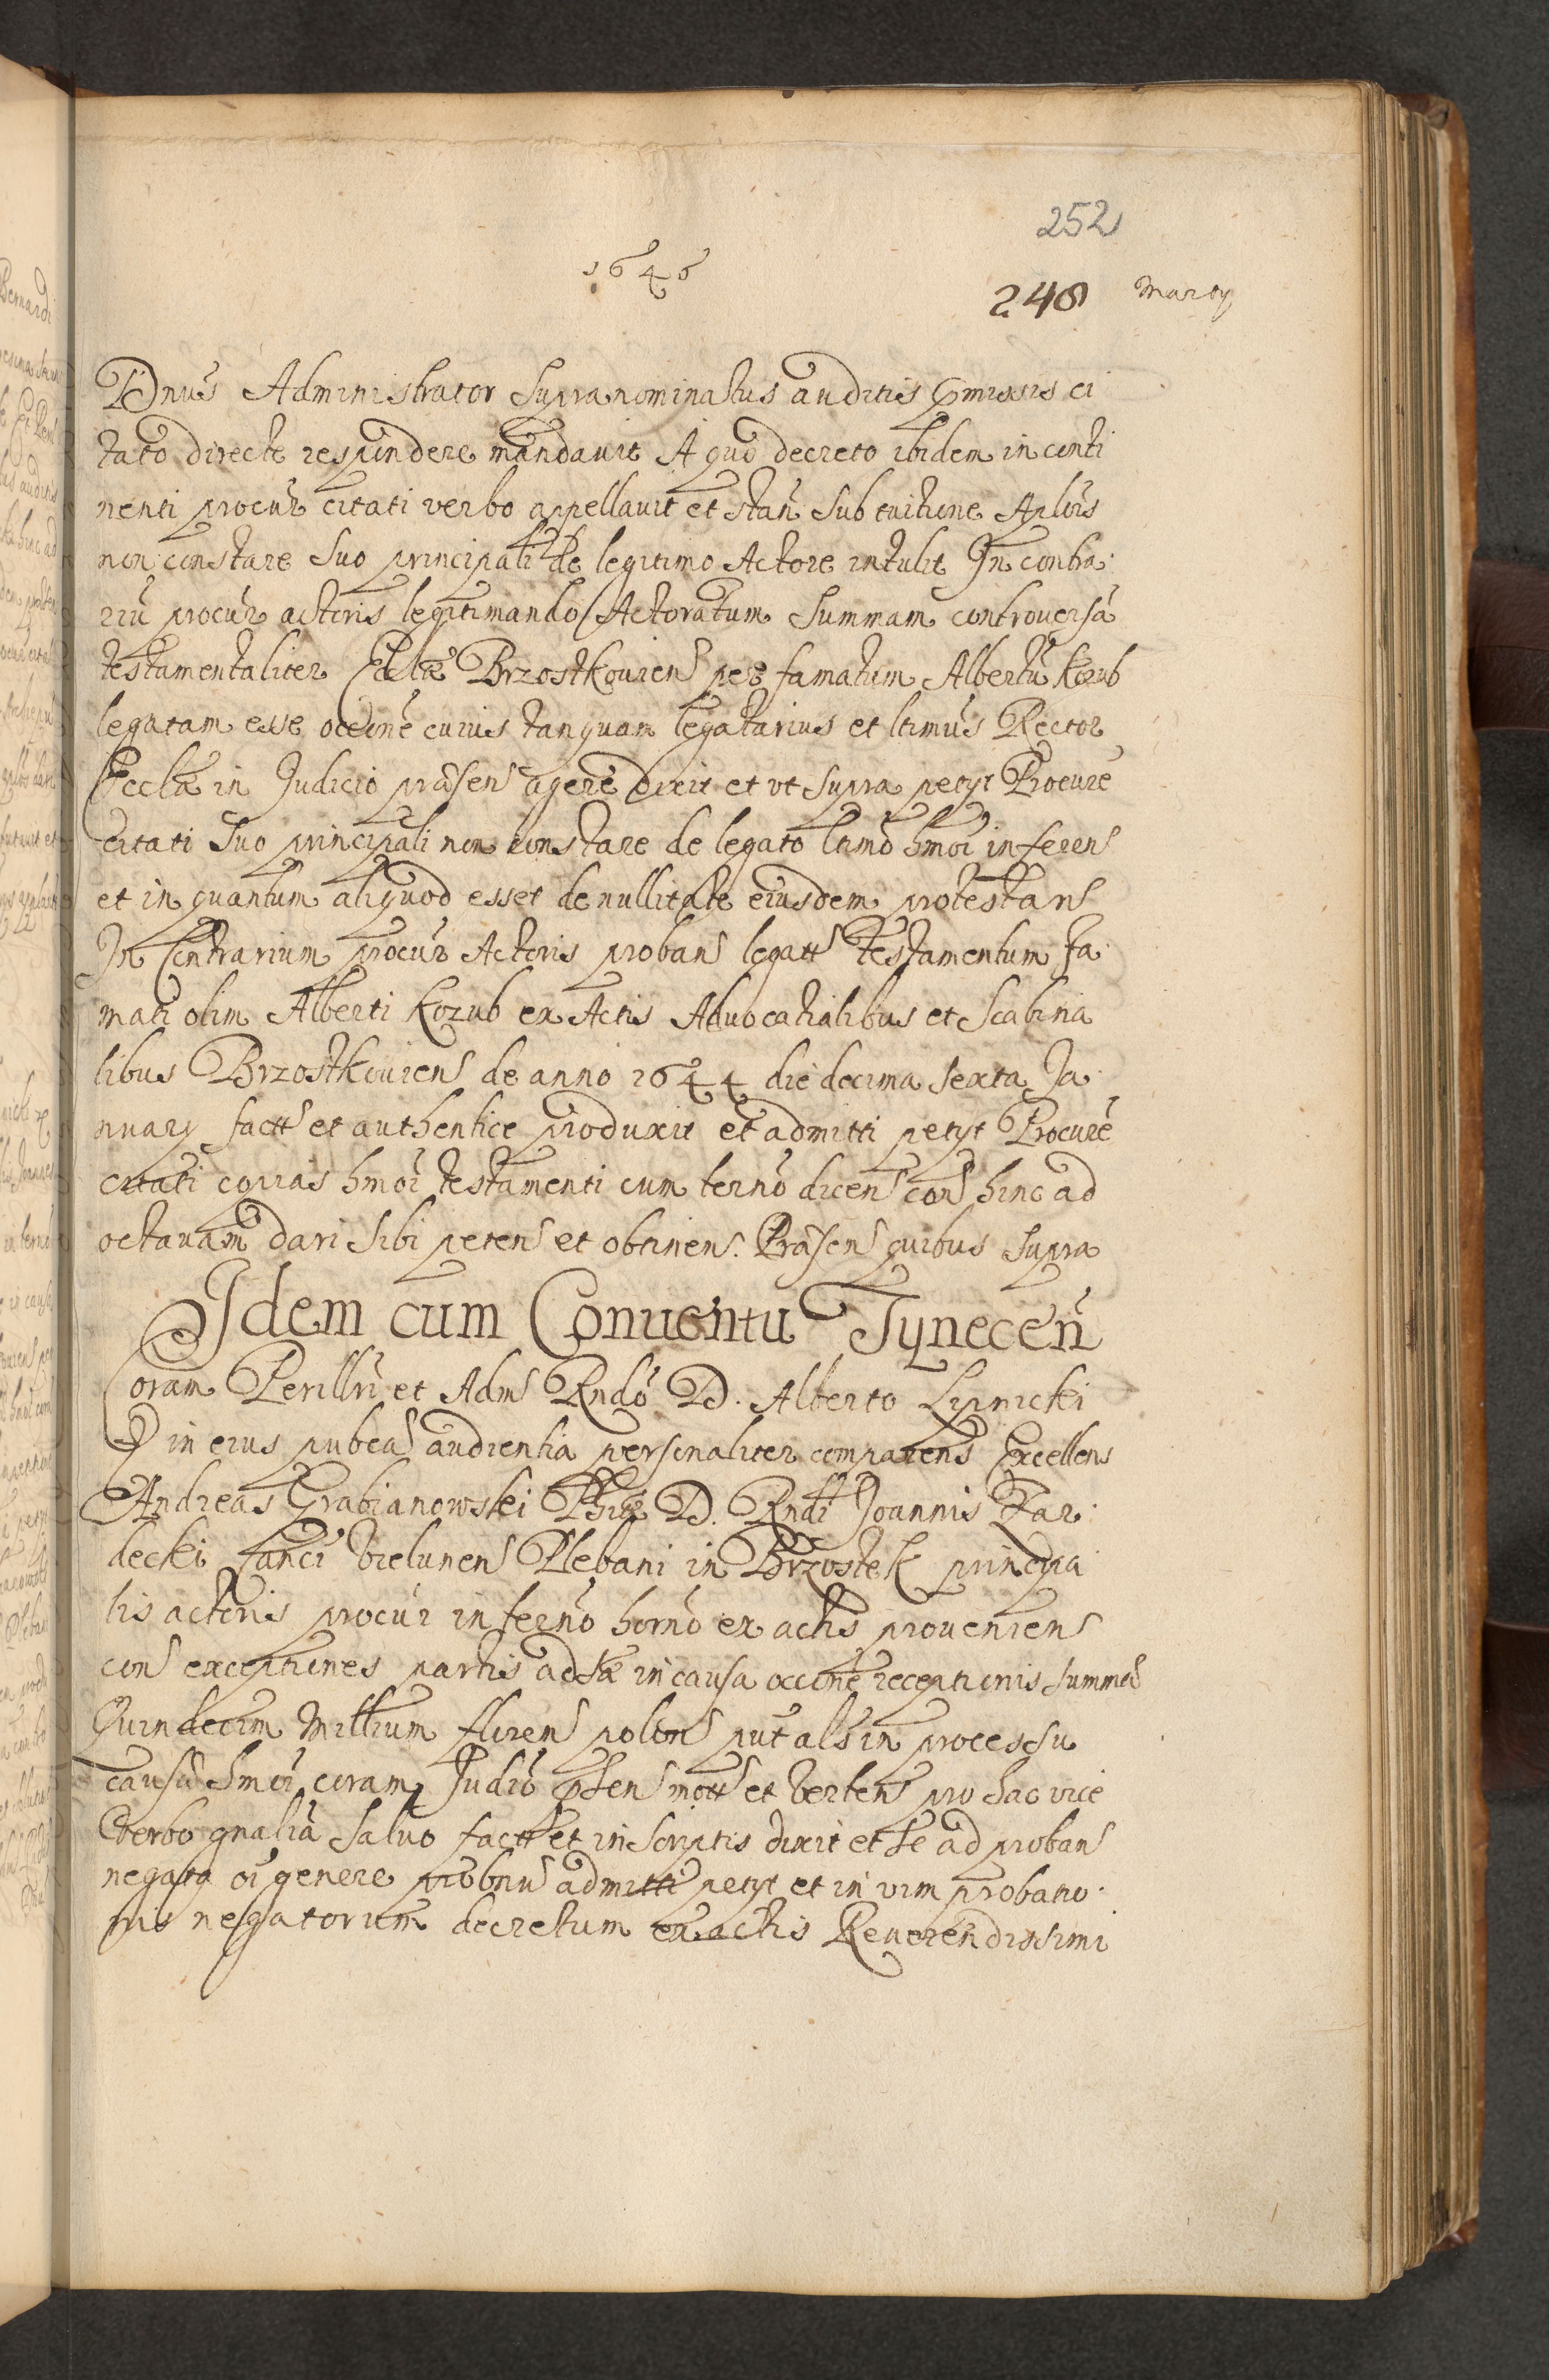 252
1646
248 Martij
Dnus Administrator Supranominatus auditis pmissis ci
tato directe respondere mandauit A quo decreto ibidem in conti
nenti procur citati verbo appellauit et stan Sub tuitione Aplors
non constare Suo principali de legitimo Actore intulit In contra
riu procur actoris legitimando Actoratum Summam controuersa
testamentaliter Eclæ Brzostkouien per famatum Albertu Kozub
legatam esse occone cuius tanquam legatarius et ltimus Rector
Ecclæ in Judicio præsen agere dixit et vt supra petijt Procure
citati Suo principali non constare de legato ltimo hmoi inferen
et in quantum aliquod esset de nullitate eiusdem protestans
In Contrarium procur Actoris proban legatt testamentum fa
mati olim Alberti Kozub ex Actis Aduocatialibus et Scabina
libus Brzostkouien de anno 1644 die decima sexta Ja
nuarij factt et authentice produxit et admitti petijt Procure
citati copias hmoi testamenti cum termo dicen con hinc ad
octauam dari Sibi peten et obtinen. Præsen quibus supra
Idem cum Conuentu Tynecen
Coram Perillri et Adm Rndo D. Alberto Lipnicki
in eius pubca audientia personaliter comparens Excellens
Andreas Grabianowski Phiæ D. Rndi Joannis Far
decki Canci Vielunen Plebani in Brzostek principa
lis actoris procur in termo horno ex actis prouenien
con exceptiones partis adsæ in causa occone receptionis summæ
Quindecim Millium floren polon put als in processu
causæ hmoi coram Judio psen mott et verten pro hac vice
verbo gnalia Saluo factt et in scriptis dixit et se ad proban
negata oi genere probnu admitti petijt et in vim probatio
nis negatorium decretum ex actis Reuerendissimi